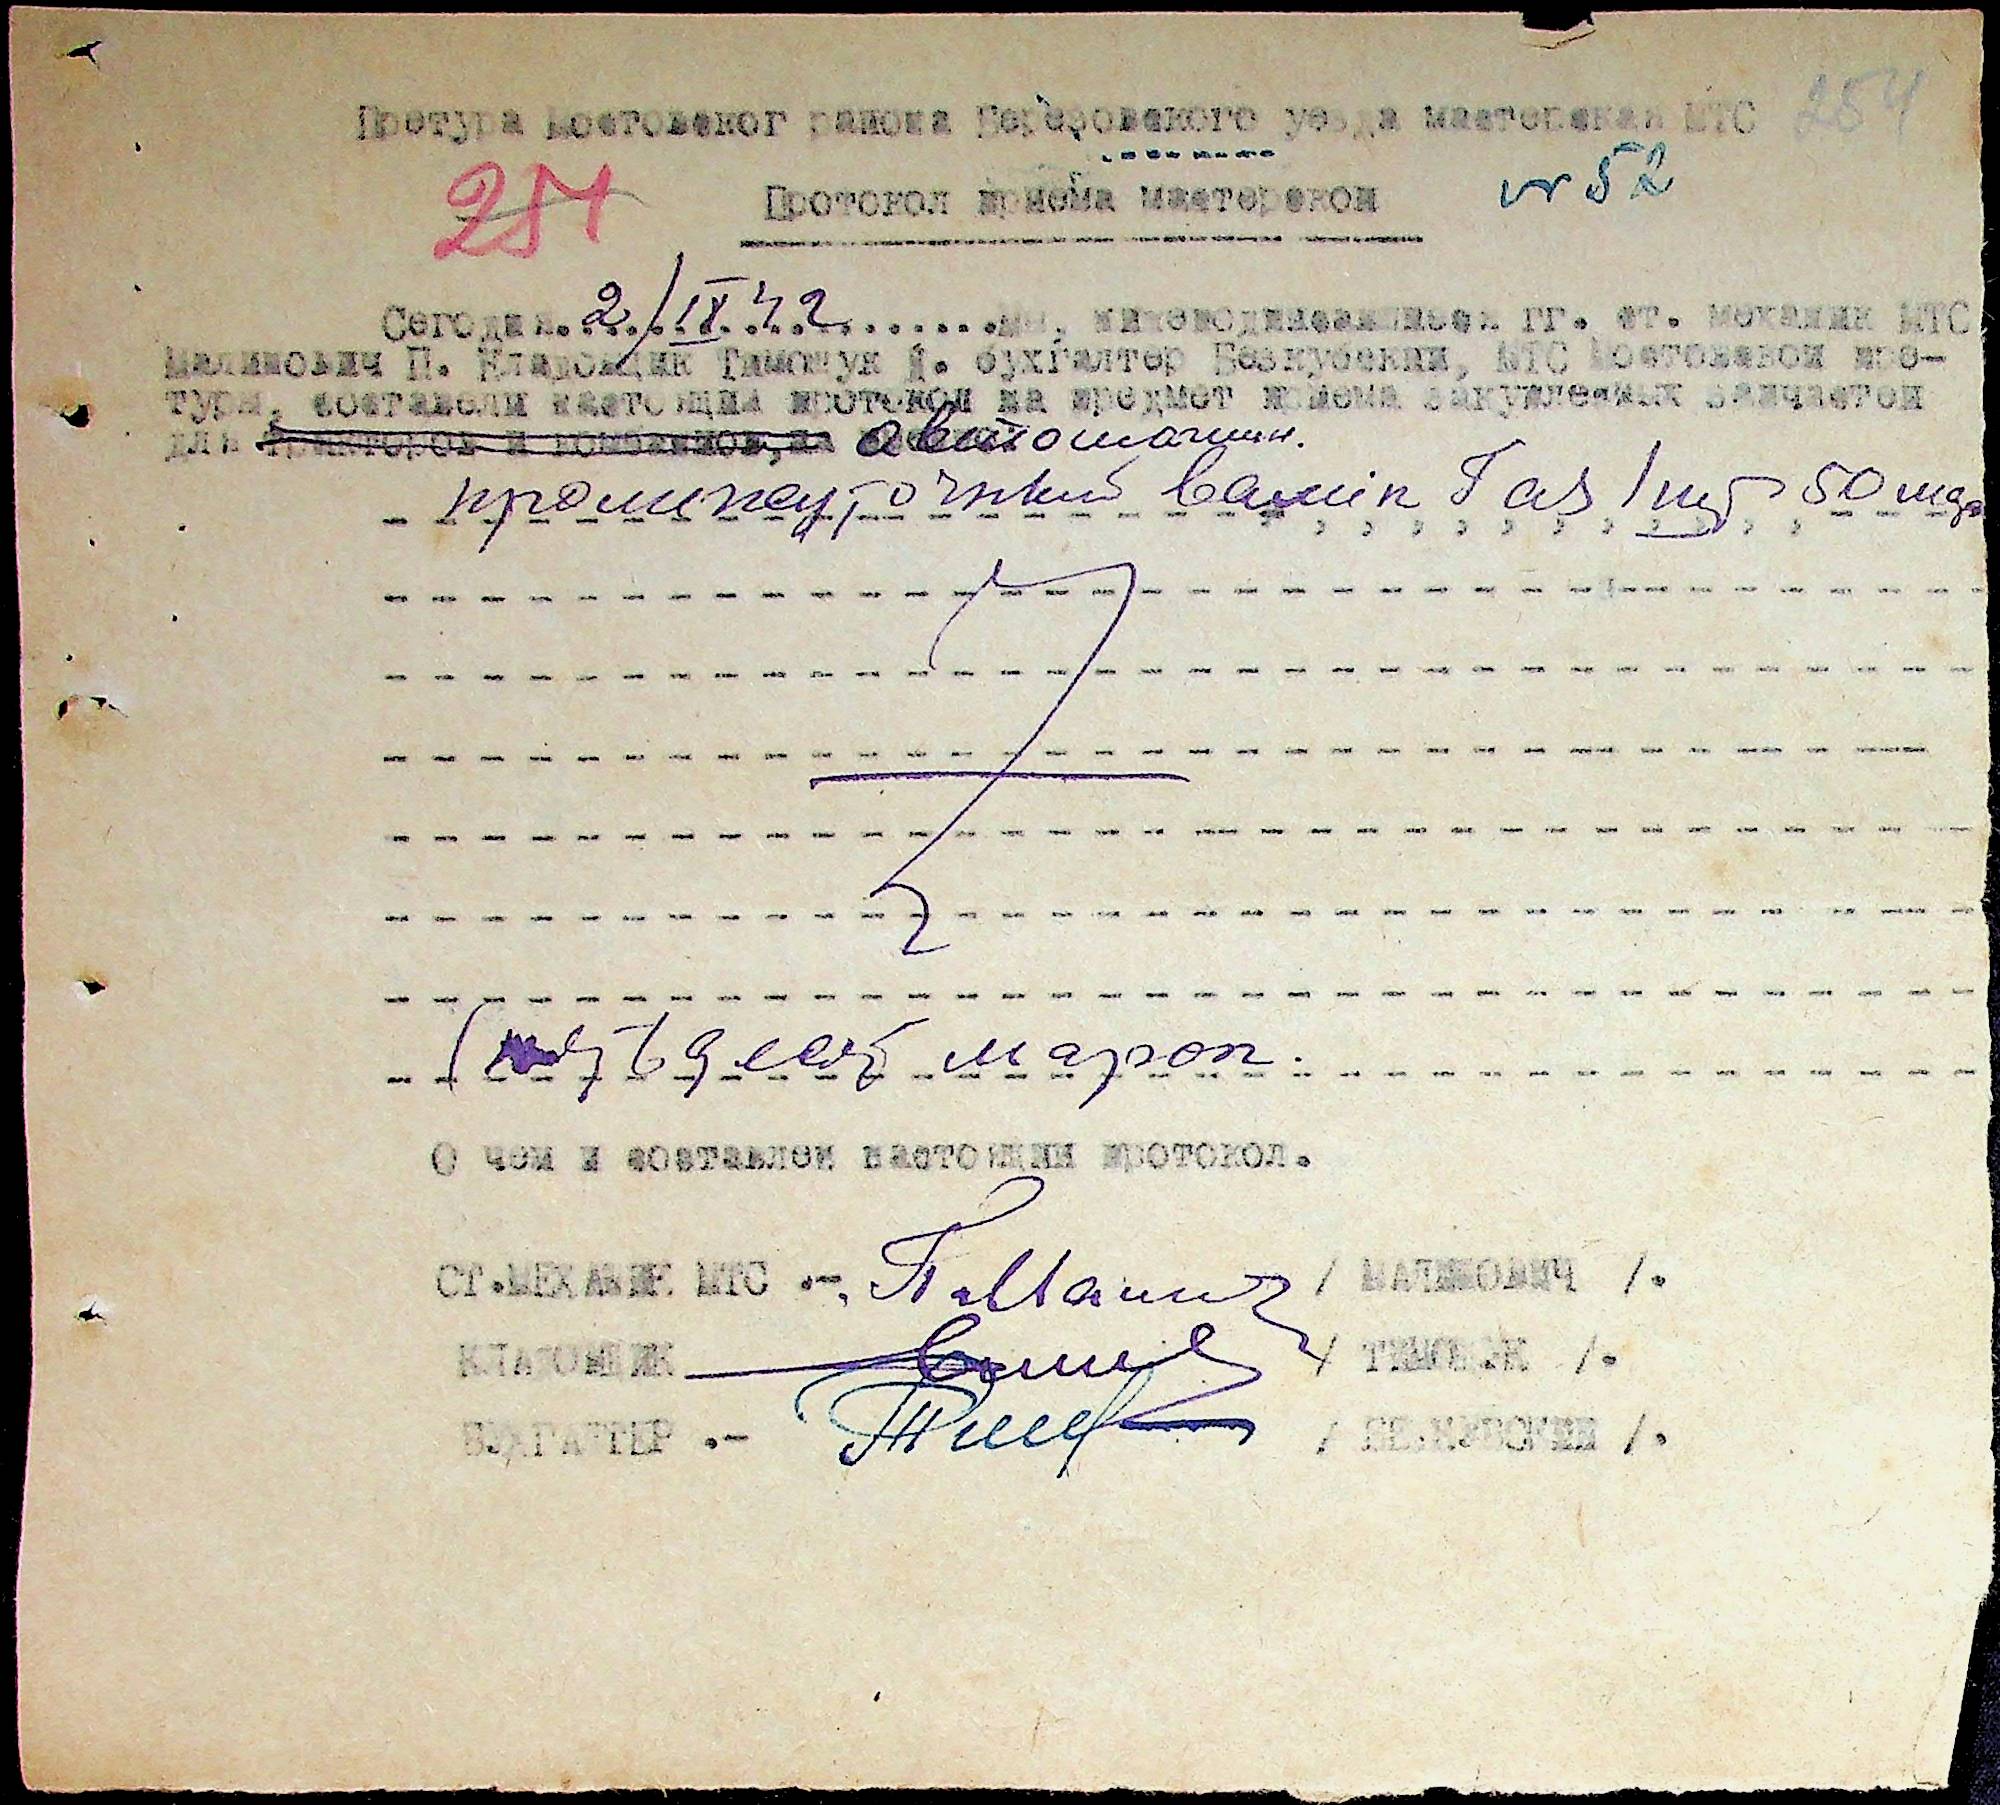 Претура Мостовског раиона Березовского уезда мастерская МТС 254
251 Протокол приема мастерскои № 52
Сегодня 2/IX 42 мы, нижеподписавшиеся гг. ст. механик МТС
Малинович П. Кладовщик Тимощук Я. бухгалтер Безкубский, МТС Мостовскои пре-
туры, составили настоящии протокол на предмет приема закупленных запчастеи
для тракторов и комбаинов, автомашин.
промежуточный валик Gas 1 шт 50 мар
марок.
О чем и составлен настоящии протокол.
СТ.МЕХАНИК МТС .- П. Малин / МАЛИНОВИЧ /.
КЛАДОВЩИК / ТИМОЩУК /.
БУХГАЛТЕР .- / БЕЗКУБСКИИ /.